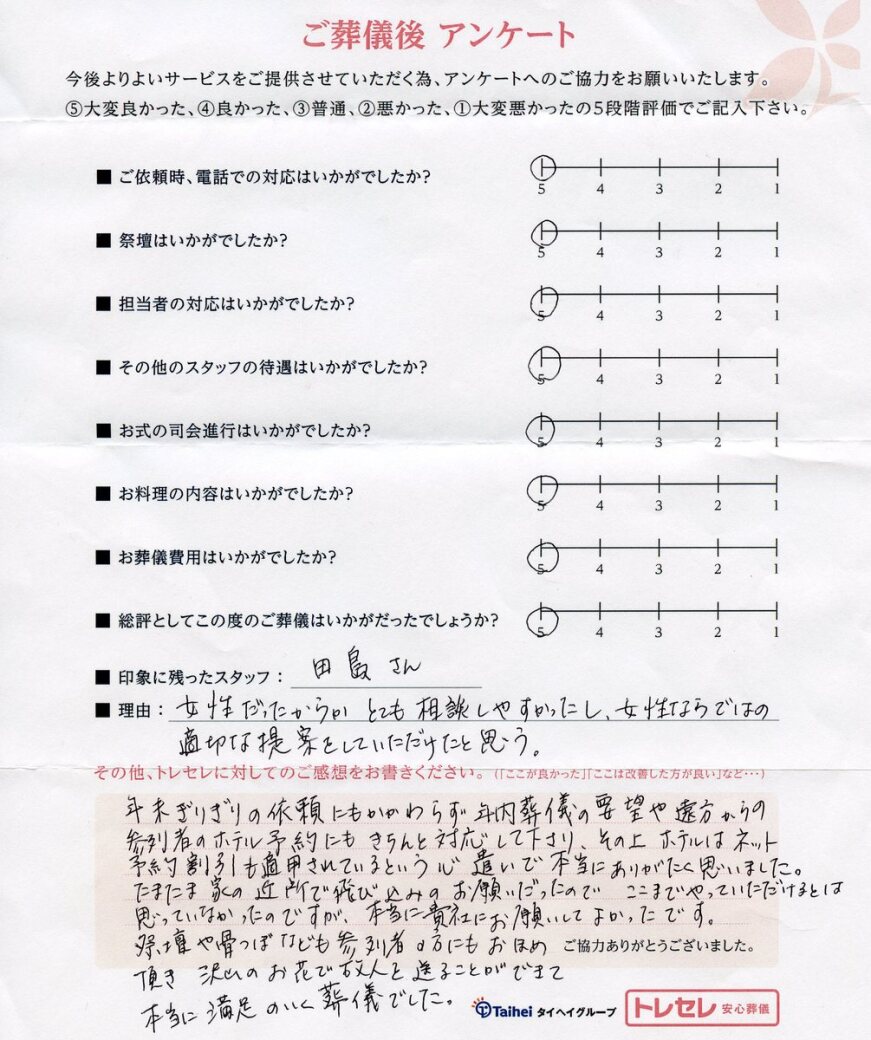 ご葬儀後 アンケート
今後よりよいサービスをご提供させていただく為、アンケートへのご協力をお願いいたします。
⑤大変良かった、④良かった、③普通、②悪かった、①大変悪かったの5段階評価でご記入下さい。
■ ご依頼時、電話での対応はいかがでしたか?
5 4 3 2 1
■ 祭壇はいかがでしたか?
5 4 3 2 1
■ 担当者の対応はいかがでしたか?
5 4 3 2 1
■ その他のスタッフの待遇はいかがでしたか?
5 4 3 2 1
■ お式の司会進行はいかがでしたか?
5 4 3 2 1
■ お料理の内容はいかがでしたか?
5 4 3 2 1
■ お葬儀費用はいかがでしたか?
5 4 3 2 1
■ 総評としてこの度のご葬儀はいかがだったでしょうか?
5 4 3 2 1
■ 印象に残ったスタッフ: 田島さん
■ 理由: 女性だったからか とても相談しやすかったし、女性ならではの
適切な提案をしていただけたと思う。
その他、トレセレに対してのご感想をお書きください。(「ここが良かった」「ここは改善した方が良い」など…)
年末ぎりぎりの依頼にもかかわらず年内葬儀の要望や遠方からの
参列者のホテル予約にもきちんと対応して下さり、その上ホテルはネット
予約割引も適用されているという心遣いで本当にありがたく思いました。
たまたま家の近所で飛び込みのお願いだったので ここまでやっていただけるとは
思っていなかったのですが、本当に貴社にお願いしてよかったです。
祭壇や骨つぼなども参列者の方にもおほめ
ご協力ありがとうございました。
頂き 沢山のお花で故人を送ることができて
本当に満足のいく葬儀でした。
Taihei タイヘイグループ
トレセレ 安心葬儀